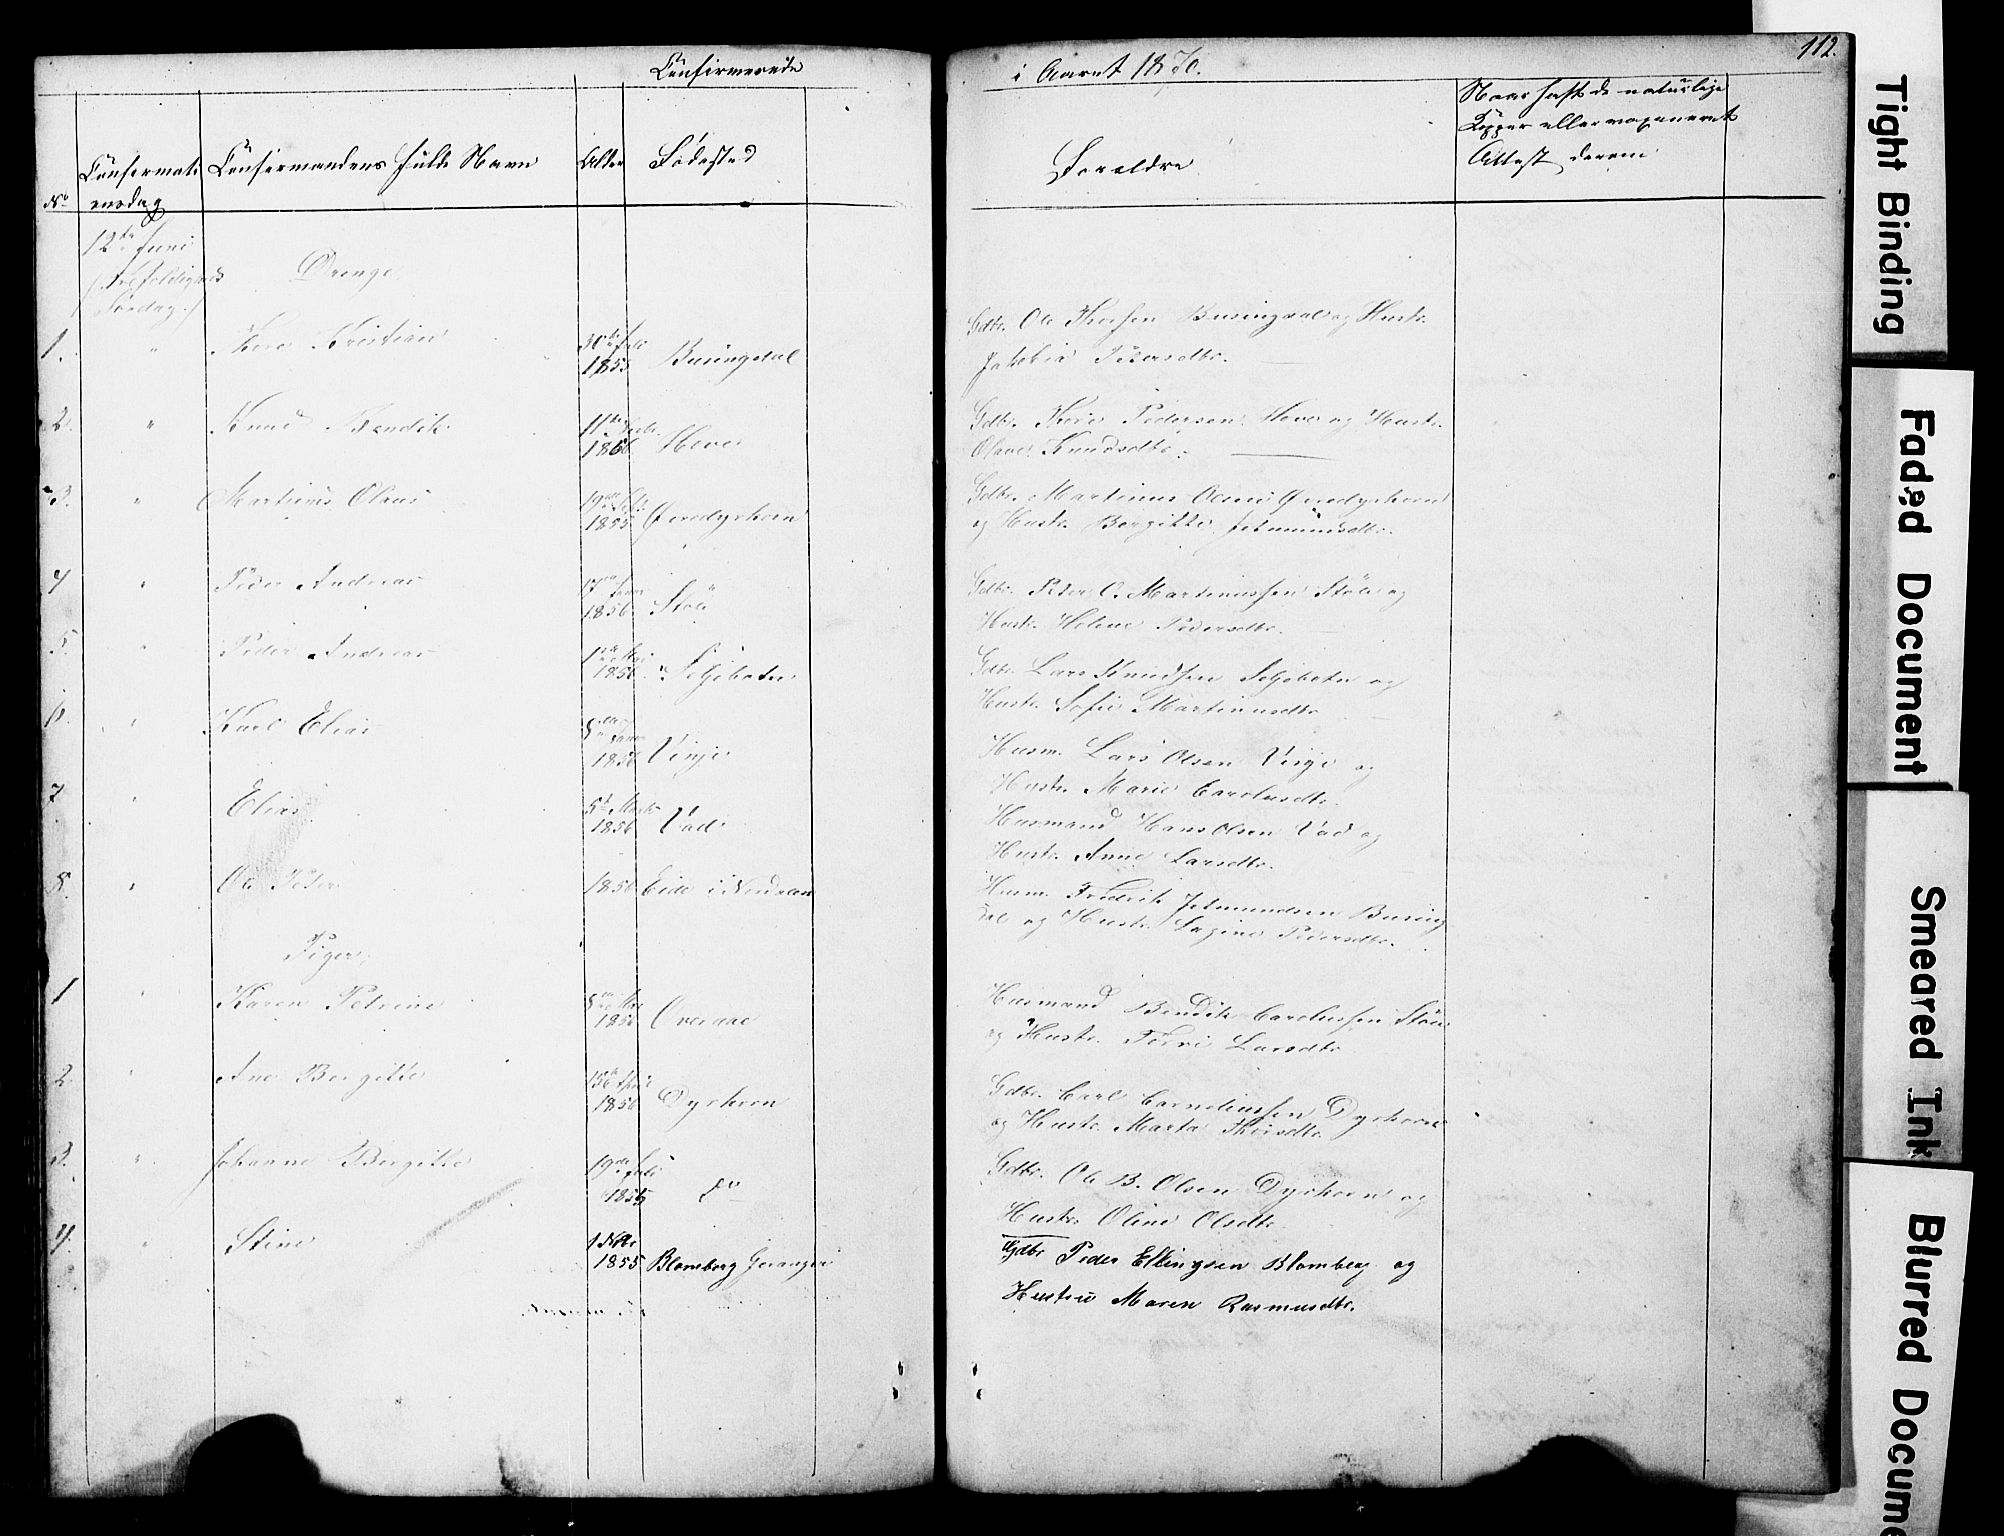 Confirmerede
i Aaret 1870.
112.
No
Confirmati
onsdag
Confirmandens fulde Navn
Alder
Fødested
Forældre
Naar havt de naturlige
Kopper eller vaxineret
Attest derom
12te Juni
(Trefoldigheds
Søndag.)
Drenge
1. " Kristian 30te Juli 1855 Busingdal
Gdbr. Ole Thorsen Busingdal og Hustr.
Jakobia Pedersdtr.
2. " Knud Bendik 11te Febr. 1856 Hove
Gdbr. Pedersen Hove og Hustr.
Olave Knudsdtr.
3. " Martinus Olaus 19de 1855 Øvredyrhorn
Gdbr. Martinus Olsen Øvredyrhorn
og Hustr. Bergitte Jetmundsdtr.
4 " Peder Andreas 17de Januar 1856 Stöa
Gdbr. Peter O. Martinussen Stöa og
Hustr. Helene Pedersdtr.
5. " Peder Andreas 1ste Mai 1856. Seljebotn
Gdbr. Lars Knudsen Seljebotn og
Hustr. Sofie Martinusdtr.
6. " Karl Elias 8de Januar 1856 Vinje
Husm. Lars Olsen Vinje og
Hustr. Marie Carolusdtr.
7 " Elias 5te Marts 1856 Vad
Husmand Hans Olsen Vad og
Hustr. Anne Larsdtr.
8. " Ole Peter 1856 Eide i Nordalen
Husm. Fredrik Jetmundsen Busing
dal og Hustr. Pedersdtr.
Piger.
1 " Karen Petrine 8de 1856 Overaae
Husmand Bendik Carolussen Stöa
og Hustr. Larsdtr.
2. " Ane Bergitte 15de April 1856 Dyrhorn
Gdbr. Carl Corneliussen Dyrhorn
og Hustr. Marta Thorsdtr.
3. " Johanne Bergitte 19de Juli 1855 do
Gdbr. Ole B. Olsen Dyrhorn og
Hustr. Oline Olsdtr.
4. " Stine 1 Nvbr 1855 Blomberg Geranger
Gdbr Peder Ellingsen Blomberg og
Hustru Maren Rasmusdtr.
Tight Binding
Faded Document
Smeared Ink
Blurred Docume